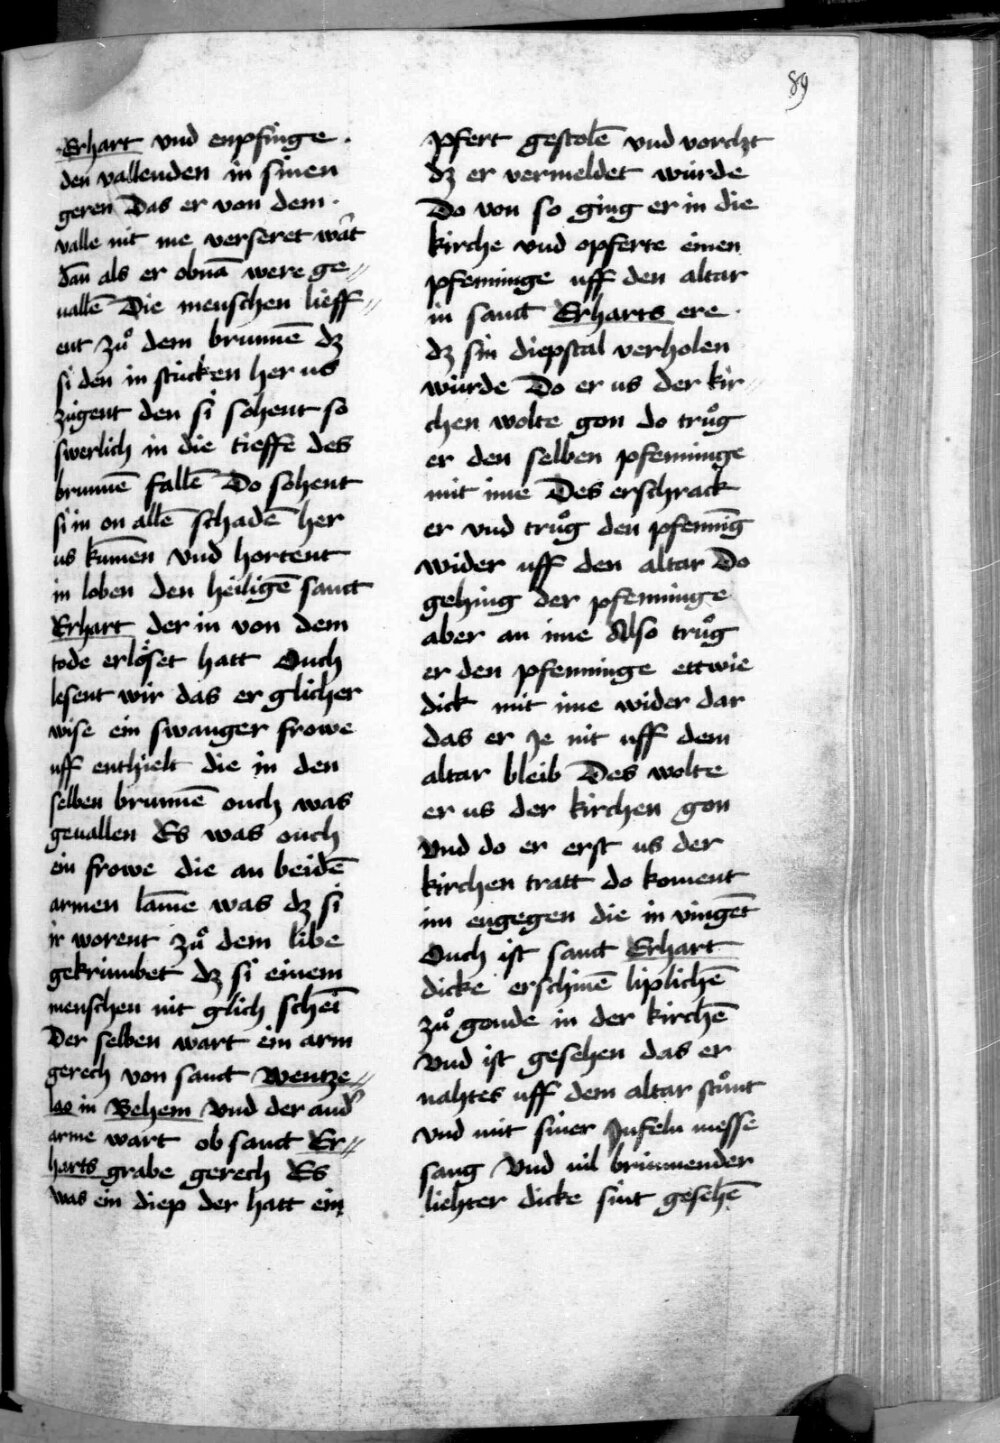 89
Erhart vnd enpfinge ·
den vallenden in sinen
geren Das er von dem ·
valle nit me verseret wart
dan als er obnā were ge⸗
uallē Die menschen lieff⸗
ent zuͦ dem brunnē dz
si den in stücken her us
zügent den si sohent so
swerlich in die tieffe des
brunnē fallē Do sohent
si in on allē schadē her
us kumen vnd hortent
in loben den heiligē sanct
Erhart der in von dem
tode erlöset hatt Ouch
lesent wir das er glicher
wise ein swanger frowe
uff enthielt die in den
selben brunnē ouch was
geuallen Es was ouch
ein frowe die an beidē
armen lāme was dz si
ir worent zuͦ dem libe
gekrümbet dz si einem
menschen nit glich schein
Der selben wart ein arm
gerech von sanct Wentze⸗
las in Behem vnd der and'
arme wart ob sanct Er⸗
harts grabe gerech Es
was ein diep der hatt ein
pfert gestolē vnd vorcht
dz er vermeldet würde
Do von so ging er in die
kirche vnd opferte einen
pfenninge uff den altar
in sanct Erharts ere ·
dz sin diepstal verholen
würde Do er us der kir⸗
chen wolte gon do truͦg
er den selben pfenninge
mit ime Des erschrack
er vnd truͦg den pfennīg
wider uff den altar Do
gehing der pfenninge
aber an ime Also truͦg
er den pfenninge ettwie
dick mit ime wider dar
das er Je nit uff dem
altar bleib Des wolte
er us der kirchen gon
vnd do er erst us der
kirchen tratt do koment
im engegen die in vingēt
Ouch ist sanct Erhart
dicke erschinē liplichē
zuͦ gonde in der kirchē
vnd ist gesehen das er
nahtes uff dem altar stuͦnt
vnd mit siner Jnfeln messe
sang vnd vil brinnender
liehter dicke sint gesehē